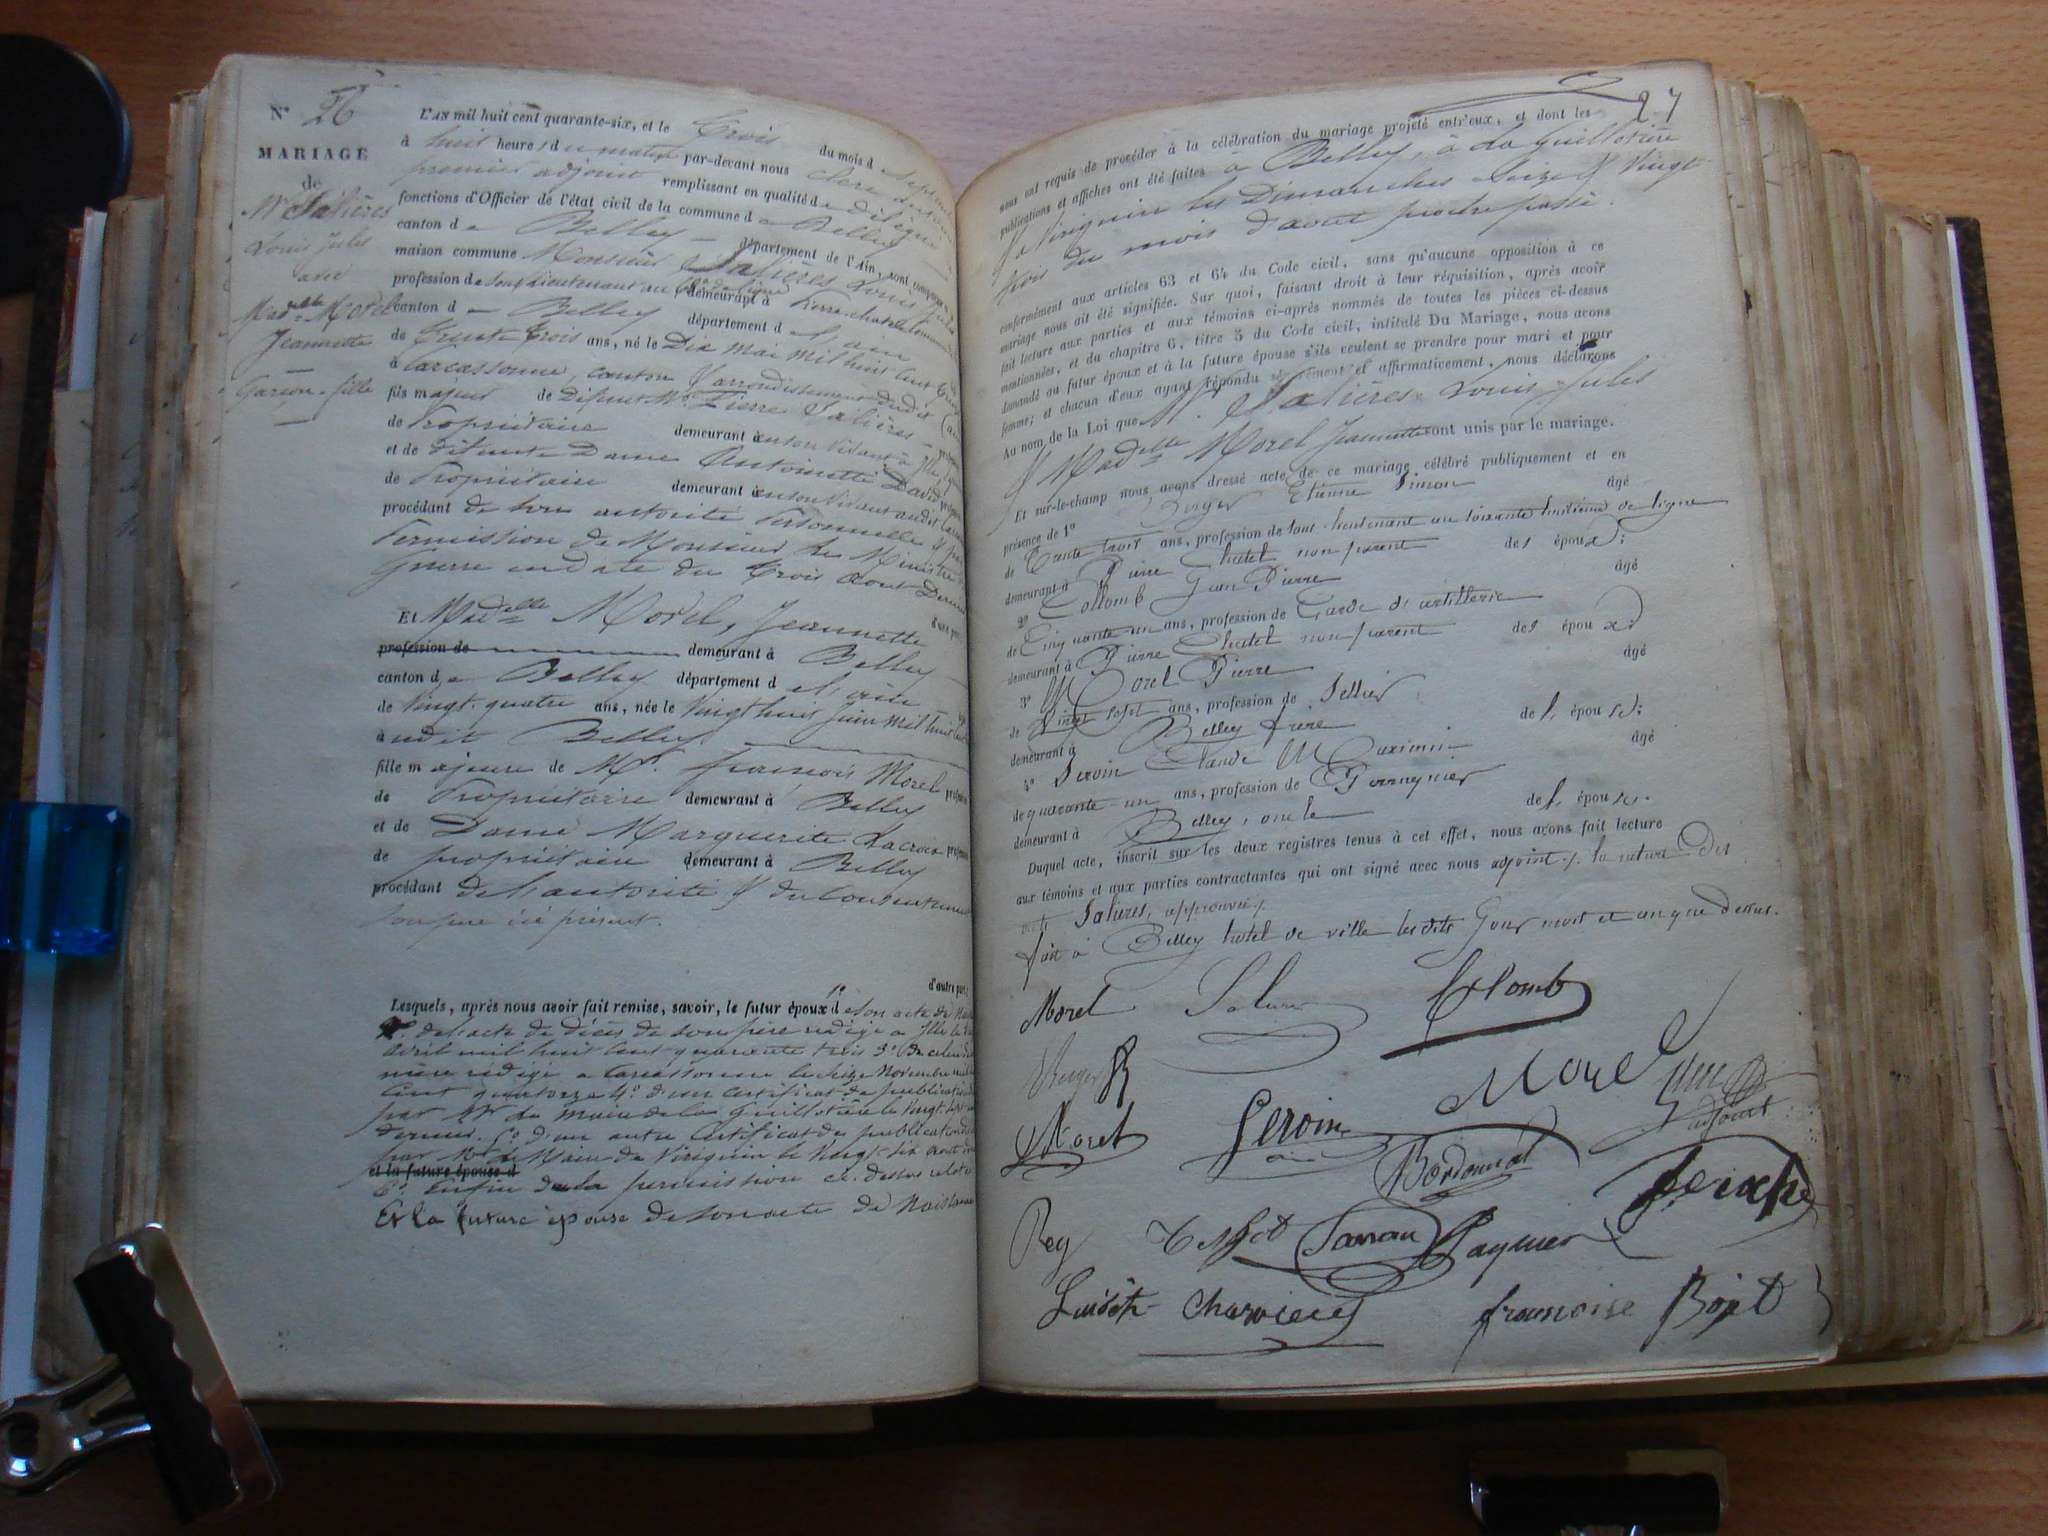 N° 26
MARIAGE
de
Mr Salières
Louis Jules
avec
Madelle Morel
Jeannette
Garçon - fille
L'AN mil huit cent quarante-six, et le Trois du mois d
à huit heures du matin par-devant nous
premier adjoint remplissant en qualité de délégué
fonctions d'Officier de l'état civil de la commune de Belley
canton de Belley département de l'Ain, sont comparus
maison commune Monsieur Salières Louis Jules
profession de Sous Lieutenant au demeurant à Pierre-chatel
canton de Belley département de l'ain
de trente trois ans, né le Dix Mai mil huit cent
à Carcassonne, canton & arrondissement dudit
fils majeur de défunt Mr Pierre Salières
de Propriétaire demeurant à en son vivant à
et de défunte Dame Antoinette David
de Propriétaire demeurant à en son vivant audit
procédant de son autorité Personnelle &
Permission de Monsieur Le Ministre
Guerre en date du trois aout Dernier
d'une part
Et Madelle Morel, Jeannette
profession de demeurant à Belley
canton de Belley département de l'ain
de Vingt-quatre ans, née le Vingt huit juin mil huit cent
audit Belley
fille majeure de Mr. françois Morel
de Propriétaire demeurant à Belley
et de Dame Marguerite Lacroix
de propriétaire demeurant à Belley
procédant de l'autorité & du Consentement
son père ici présent.
d'autre part;
Lesquels, après nous avoir fait remise, savoir, le futur époux 1° de son acte de
2°. de l'acte de décès de son père rédigé a
avril mil huit cent quarante trois 3° De celui de
mère rédigé a Carcassonne le seize Novembre mil
cent quatorze 4°. d'un certificat de publication
par Mr le maire de la Guillotière le Vingt-sept
dernier. 5° d'un autre certificat de publication
par Mr le Maire de Virignin le Vingt six aout
et la future épouse d
6°. Enfin de la permission ci-dessus relatée
Et la future épouse de son acte de Naissance
27
nous ont requis de procéder à la célébration du mariage projeté entr'eux, et dont les
publications et affiches ont été faites à Belley, à La Guillotière
& à Virignin les Dimanches Seize & Vingt
trois du mois d'aout proche passé.
conformément aux articles 63 et 64 du Code civil, sans qu'aucune opposition à ce
mariage nous ait été signifiée. Sur quoi, faisant droit à leur réquisition, après avoir
fait lecture aux parties et aux témoins ci-après nommés de toutes les pièces ci-dessus
mentionnées, et du chapitre 6, titre 5 du Code civil, intitulé Du Mariage, nous avons
demandé au futur époux et à la future épouse s'ils veulent se prendre pour mari et pour
femme; et chacun d'eux ayant répondu séparément et affirmativement, nous déclarons
Au nom de la Loi que Mr Salières Louis Jules
& Madelle Morel Jeannette sont unis par le mariage.
Et sur-le-champ nous avons dressé acte de ce mariage célébré publiquement et en
présence de 1° Berger Etienne Simon âgé
de Trente trois ans, profession de Sous-lieutenant au soixante huitième de ligne
demeurant à Pierre Chatel non parent des époux:
2° Collomb Jean Pierre âgé
de Cinquante un ans, profession de Garde d'artillerie
demeurant à Pierre Chatel non parent des époux
3° Morel Pierre âgé
de Vingt sept ans, profession de Sellier
demeurant à Belley frere de l'épouse:
4° Peroin Claude Maximin âgé
de quarante-un ans, profession de
demeurant à Belley, oncle de l'épouse.
Duquel acte, inscrit sur les deux registres tenus à cet effet, nous avons fait lecture
aux témoins et aux parties contractantes qui ont signé avec nous adjoint ;. la rature Des
mots Salières, approuvée ;.
fait à Belley hotel de ville lesdits Jour mois et an que dessus.
Morel Collomb
Berger Morel
adjoint
Morel Peroin
Rey
françoise